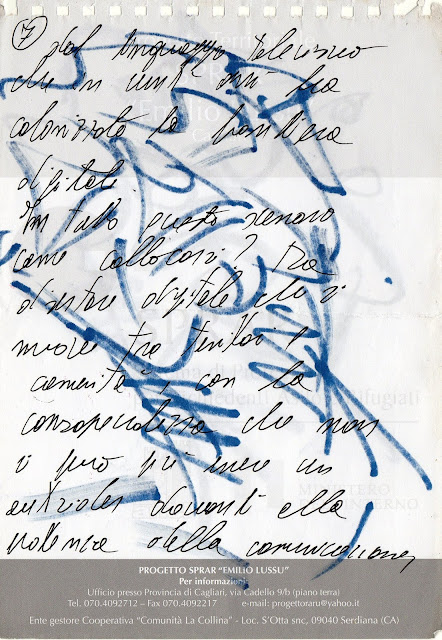 7
dal linguaggio televisivo
che in ha
colonizzato la frontiera
digitale.
In tutto questo scenario
come collocarsi? Da
disertore digitale che si
muove tra territori e
comunità, con la
consapevolezza che non
si può più essere
davanti alla
violenza della comunicazione
PROGETTO SPRAR "EMILIO LUSSU"
Per informazioni:
Ufficio presso Provincia di Cagliari, via Cadello 9/b (piano terra)
Tel. 070.4092712 – Fax 070.4092217 e-mail: progettoraru@yahoo.it
Ente gestore Cooperativa "Comunità La Collina" - Loc. S'Otta snc, 09040 Serdiana (CA)